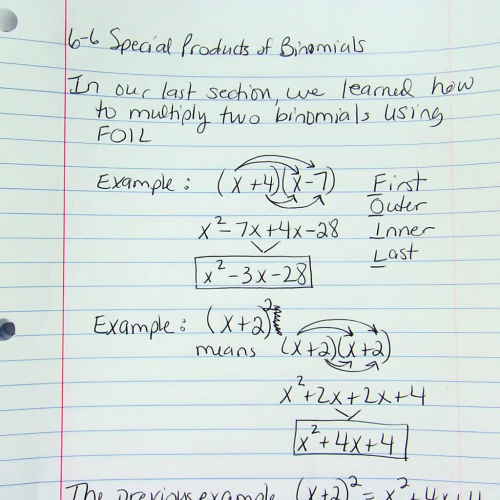 6-6 Special Products of Binomials
In our last section, we learned how
to multiply two binomials using
FOIL
Example: (x+4)(x-7) First
Outer
x²-7x+4x-28 Inner
Last
x²-3x-28
Example: (x+2)²
means (x+2)(x+2)
x²+2x+2x+4
x²+4x+4
The previous example (x+2)² = x²+4x+4